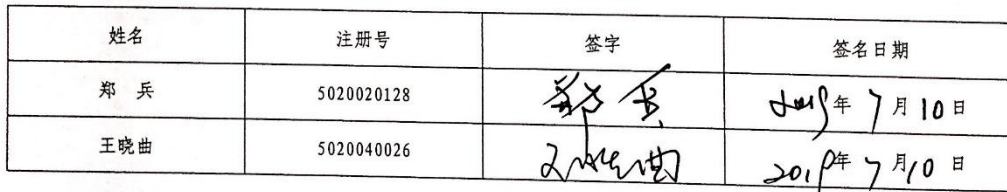 姓名 注册号 签字 签名日期
郑 兵 5020020128 郑兵 2019年 7月10日
王晓曲 5020040026 王晓曲 2019年 7月10日